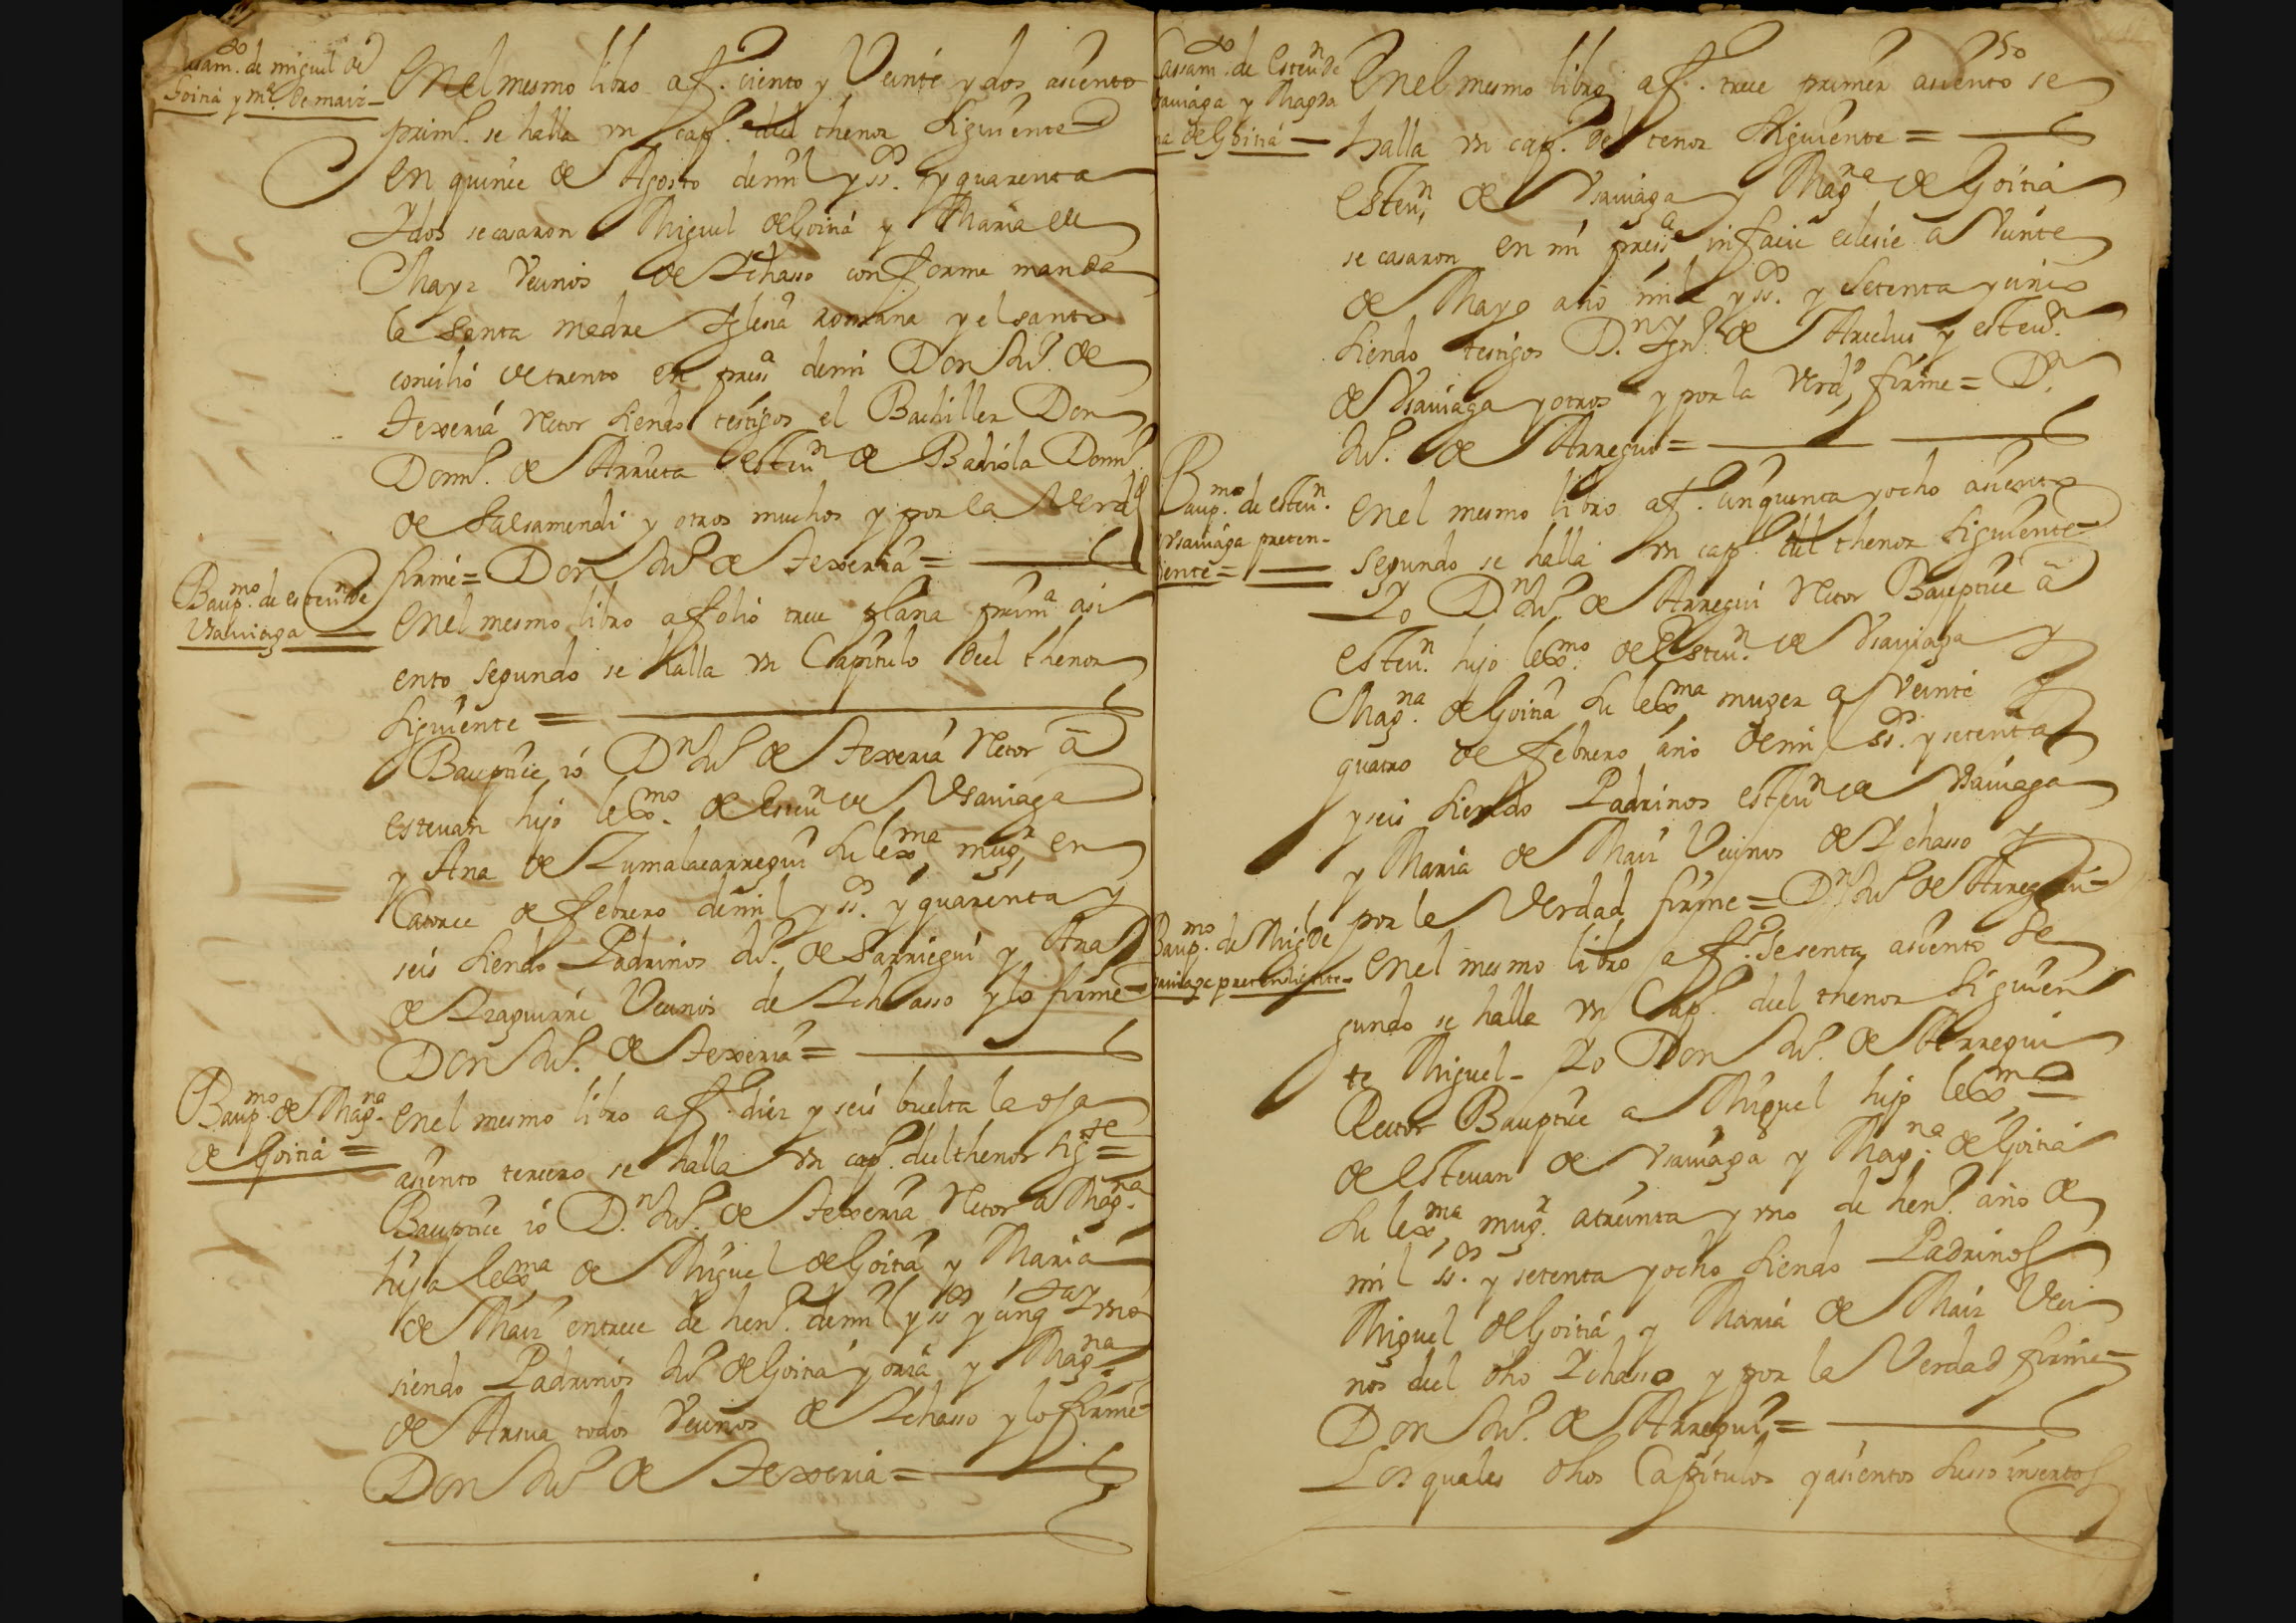 Cassam.to de miguel de
Goitia y m.a de maiz
En el mesmo libro a f.o ciento y Veinte y dos asiento
prim.o se halla vn cap.o del thenor siguiente
En quince de Agosto de mil y ss.os y quarenta
y dos se casaron Miguel de Goitia y Maria de
Mayz Vecinos de Ychasso conforme manda
la santa madre Yglesia romana y el santo
concilio de trento en press.a de mi Don Ju.o de
Texeria Retor siendo testigos el Bachiller Don
Dom.o de Arrueta esteu.n de Badiola Dom.o
de Salsamendi y otros muchos y por la Verd.d
firme = Don Ju.o de Texeria =
Baup.mo de esteu.n de
Vsauiaga
En el mesmo libro a folio trece plana prim.a asi
ento segundo se halla vn Capitulo del thenor
siguiente =
Bauptice io D.n Ju.o de Texeria Retor a
estevan hijo lex.mo de Esteu.n de Vsauiaga
y Ana de Zumalacarregui su lex.ma mug.r en
Catorce de febrero de mil y ss.os y quarenta y
seis siendo Padrinos Ju.o de Sarriegui y Ana
de Yzaguirre Vecinos de Ychasso y lo firme
Don Ju.o de Texeria =
Baup.mo de Mag.na
de Goitia =
En el mesmo libro a f.o diez y seis buelta la oja
asiento tercero se halla vn cap.o del thenor sig.te =
Bauptice io D.n Ju.o de Texeria Retor a Mag.na
hija lex.ma de Miguel de Goitia y Maria
de Maiz en trece de hen.o de mil y ss.os y cinq.ta y vno
siendo Padrinos Ju.o de Goitia y oria y Mag.na
de Arsua todos Vecinos de Ychasso y lo firme
Don Ju.o de Texeria =
50
Cassam.to de Esteu.n de
Vsauiaga y Magda
na de Goitia
En el mesmo libro a f.o trece primer asiento se
halla vn cap.o del tenor siguiente =
Esteu.n de Vsauiaga y Mag.na de Goitia
se casaron en mi press.a in facie eclesie a Veinte
de Mayo año mil y ss.os y setenta y cinco
siendo testigos D.n Ygn.o de Arechu y esteu.n
de Vsauiaga y otros y por la Verd.d firme = D.n
Ju.o de Arregui =
Baup.mo de esteu.n
Vsauiaga preten-
diente =
En el mesmo libro a f.o cinquenta y ocho asiento
segundo se halla vn cap.o del thenor siguiente
Yo D.n Ju.o de Arregui Retor Bauptice a
esteu.n hijo lex.mo de Esteu.n de Vsauiaga y
Mag.na de Goitia su lex.ma muger a Veinte y
quatro de febrero año de mil ss.os y setenta
y seis siendo Padrinos esteu.n de Vsauiaga
y Maria de Maiz Vecinos de Ychasso y
por la Verdad firme = D.n Ju.o de Arregui =
Baup.mo de Mig.l de
Vsauiaga pretendiente
En el mesmo libro a f.o sesenta asiento se
gundo se halla vn Cap.o del thenor siguien
te Miguel - Yo Don Ju.o de Arregui
Rector Bauptice a Miguel hijo lex.mo
de estevan de Vsauiaga y Mag.na de Goitia
su lex.ma mug.r a treinta y vno de hen.o año de
mil ss.os y setenta y ocho siendo Padrinos
Miguel de Goitia y Maria de Maiz Veci
nos del dho Ychasso y por la Verdad firme =
Don Ju.o de Arregui =
Los quales dhos Capitulos y asientos susso insertos